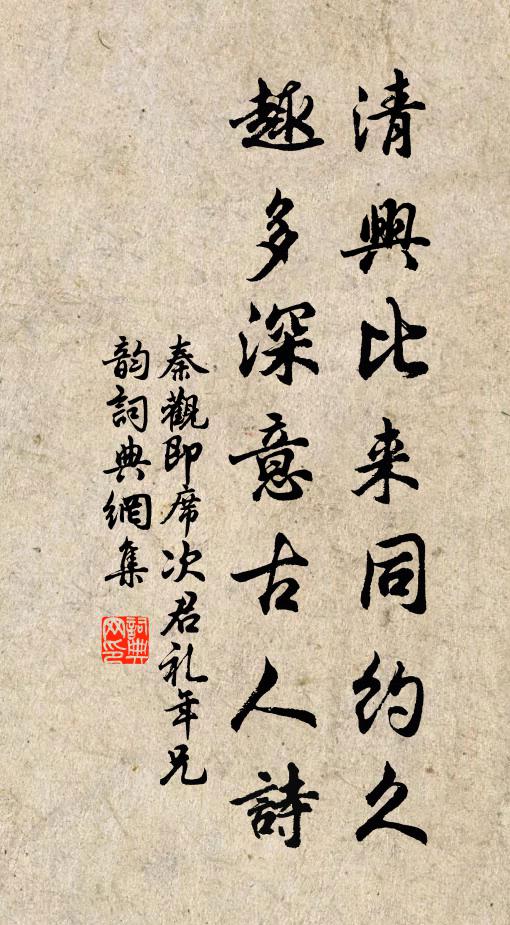 清興比来同約久
趣多深意古人詩
秦觀即席次君礼年兄
韵詞典網集
詞典網印